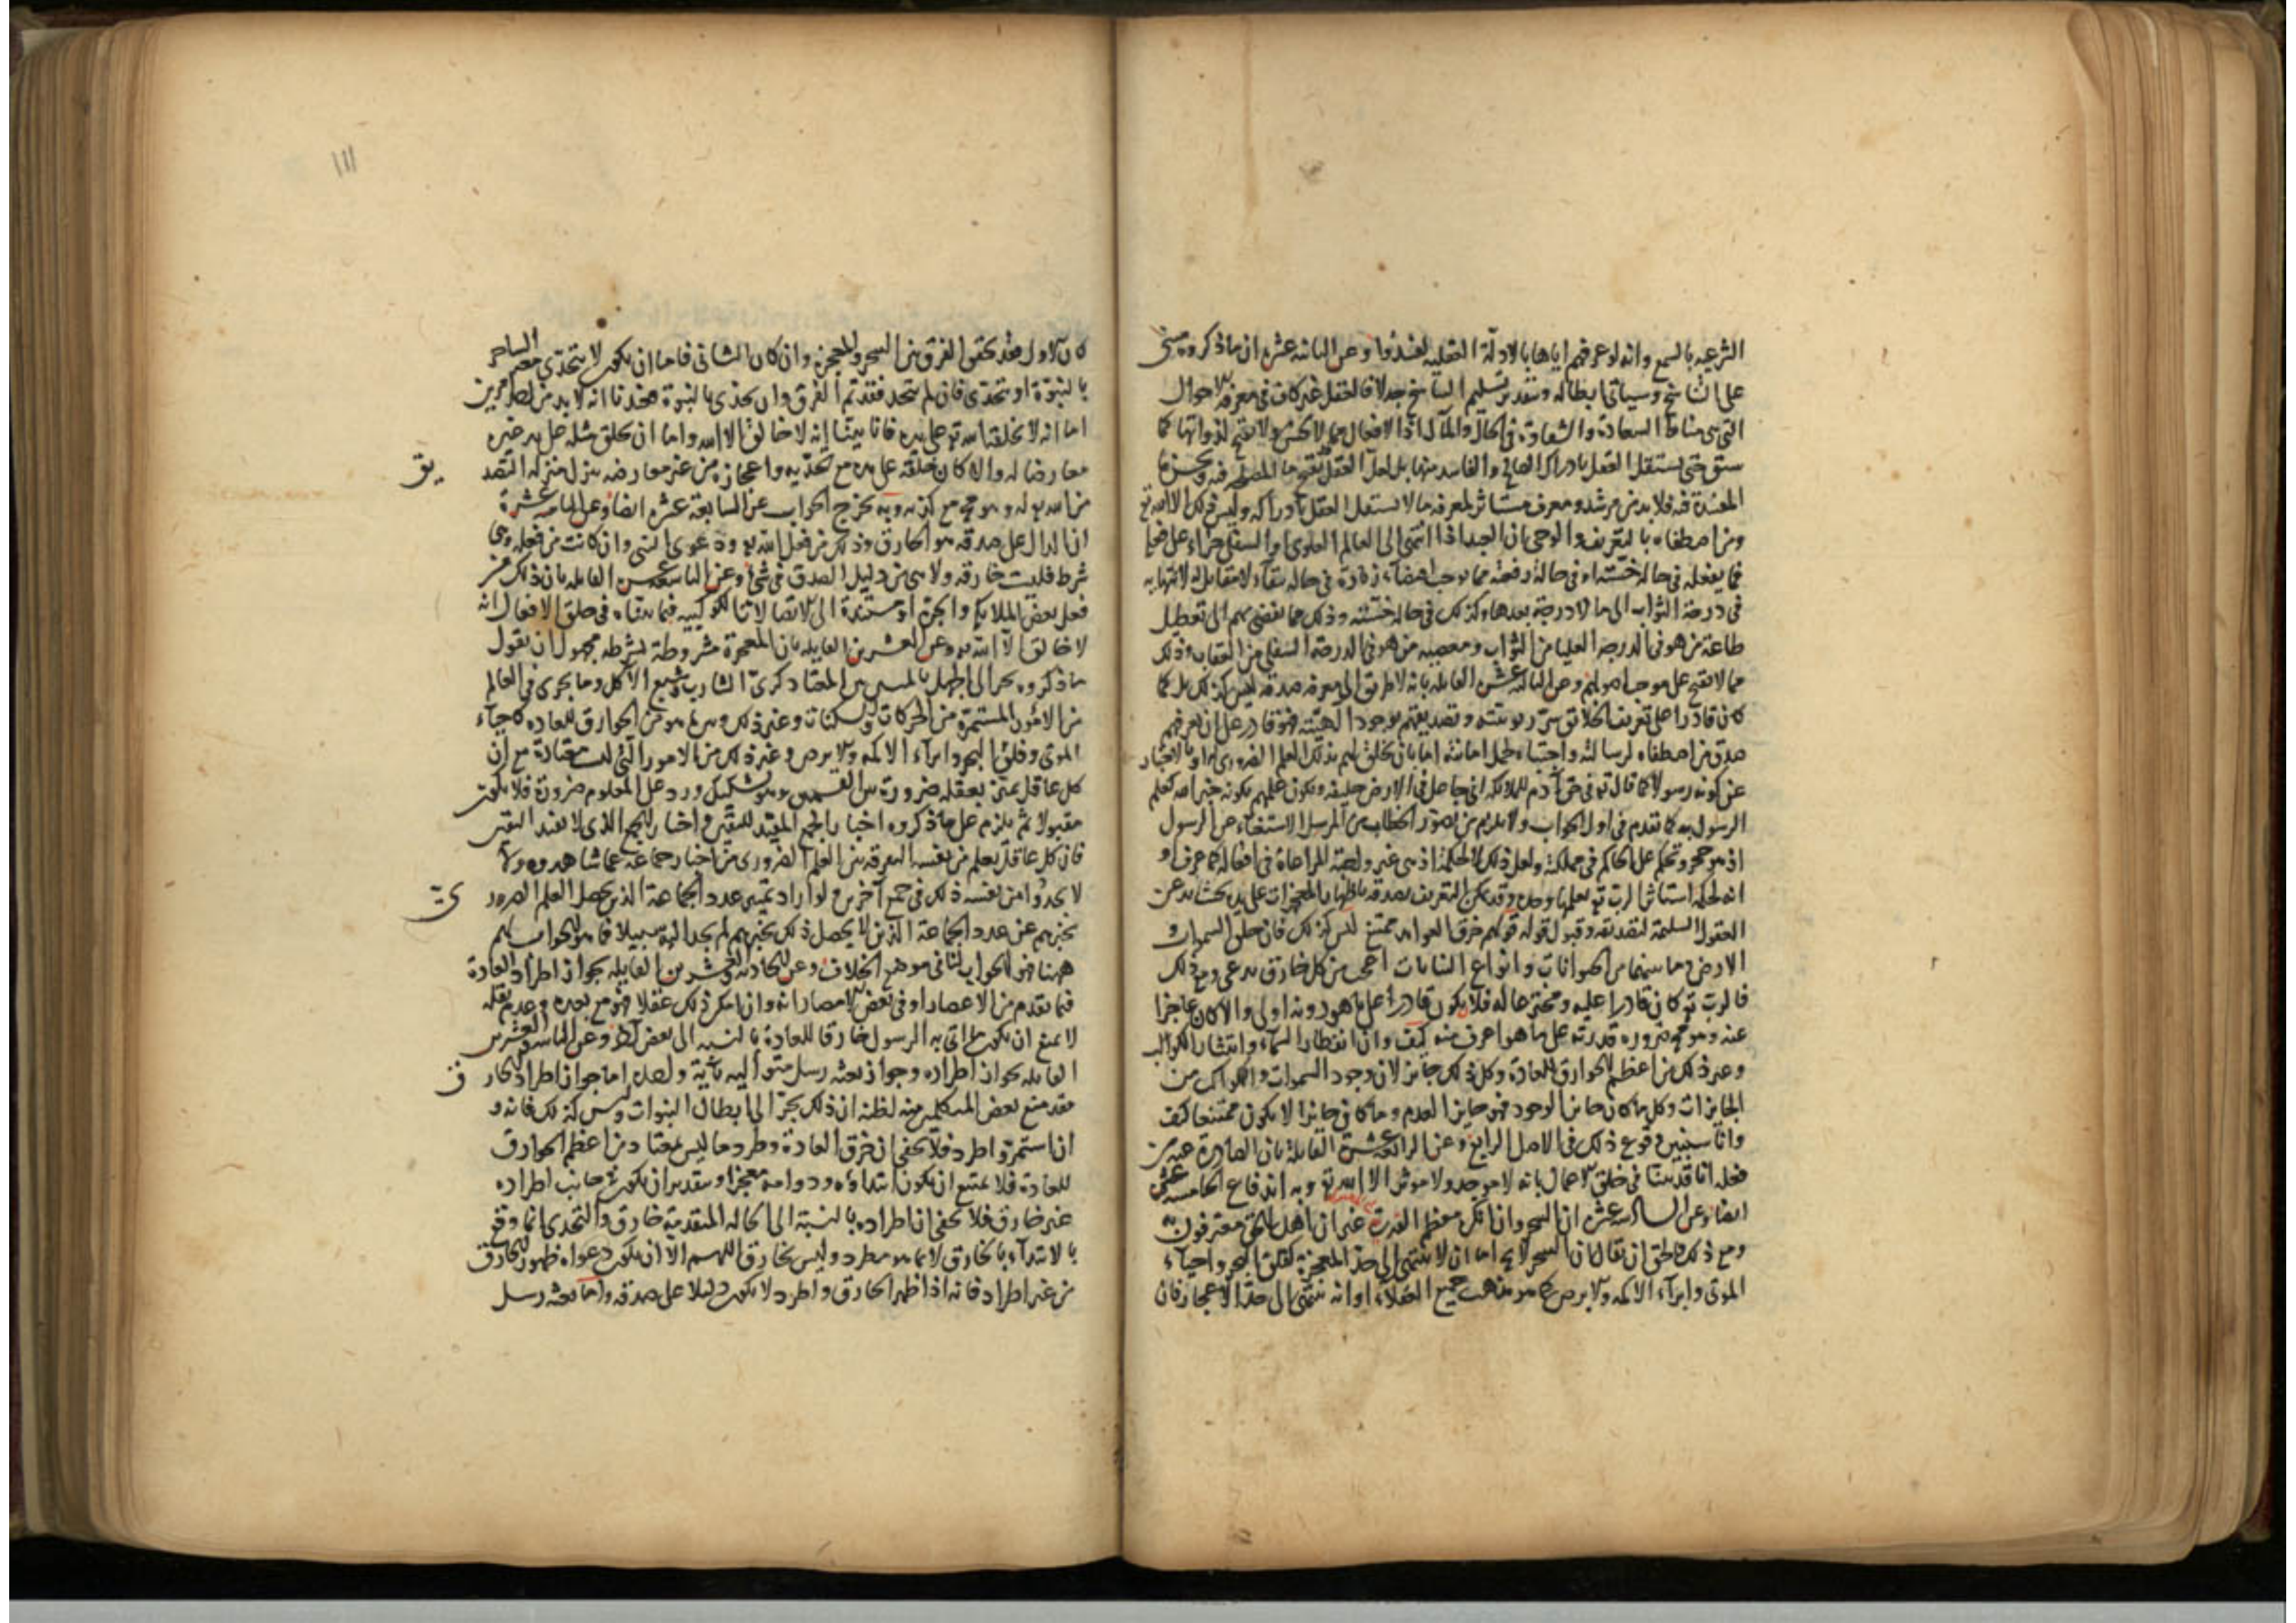 الشرعيه بالسمع وانه لو عرفهم اياها بالادلة العقليه لفندوا وعن الثانيه عشره ان ما ذكروه مبنى
على التناسخ وسياتى ابطاله وبتقدير تسليم التناسخ جدلا فالعقل غير كاف فى معرفة الاحوال
التى هى مناط السعادة والشقاوة فى الحال والمآل اذ الافعال مما لا تحسن ولا تقبح لذواتها كما
سبق حتى يستقل العقل بادراك الصالح والفاسد منها بل لعل العقل يقبح ما المصلحة فيه ويحسن ما
المفسدة فيه فلا بد من مرشد ومعرف لمعرفة ما لا يستقل العقل بادراكه وليس ذلك الا الله تع
ومن اصطفاه بالتعريف والوحى بان العبد اذا انتهى الى العالم العلوى او السفلى جزاء على فعله
فما يفعله فى حاله خسته او فى حالة رفعته مما يوجب زيادة فى حاله
فى درجة الثواب الى ما لا درجة بعدها وكذلك فى حاله خسته وذلك مما يفضى بهم الى تعطيل
طاعة من هو فى الدرجه العليا من الثواب ومعصيه من هو فى الدرجة السفلى من العقاب وذلك
مما لا يقبح على موجب اصولهم وعن الثالثة عشر القايله بانه لا طريق الى معرفه صدقه ليس كذلك بل كما
كان قادرا على تعريف الخلائق سر ربوبيته وتصديقهم بوجود الهيته فهو قادر على ان يعرفهم
صدق من اصطفاه لرسالته واجتباه لحمل امانته اما بان يخلق لهم بذلك العلم الضرورى او بالاخبار
عن كونه رسولا كما قال تع فى حق آدم للملائكه انى جاعل فى الارض خليفه ويكون علمهم بكونه خبر الله كعلم
الرسول به كما تقدم فى اول الجواب ولا يلزم من تصور الخطاب من المرسل الاستغناء عن الرسول
اذ هو حجر وتحكم على الحاكم فى مملكته ولعل ذلك لحكمة اذ هى غير واجبة المراعاة فى افعاله كما عرف او
انه لحكمة استاثر الرب تع بعلمها وحده وقد يمكن التعريف بصدقه باظهار المعجزات على يده بحيث يذعن
العقول السليمة لتصديقه وقبول قوله قولهم خرق العوايد ممتنع ليس كذلك فان خلق السموات و
الارض وما بينهما من الحيوانات وانواع النباتات اعجب من كل خارق يدعى ومع ذلك
فالرب تع كان قادرا عليه ومخترعا له فلا يكون قادرا على ما هو دونه اولى والا كان عاجزا
عنه وهو مع ضروره قدرته على ما هو اعرف منه كيف وان انفطار السماء وانتشار الكواكب
وغير ذلك من اعظم الخوارق للعادة وكل ذلك جايز لان وجود السموات والكواكب من
الجايزات وكل ما كان جايز الوجود فهو جايز العدم وما كان جايزا لا يكون ممتنعا كيف
وانا سنبين وقوع ذلك فى الاصل الرابع وعن الرابعة عشرة القايلة بان الصادرة عنه من
فعله انا قد بينا فى خلق الاعمال بانه لا موجد ولا موثر الا الله تع وبه اندفاع الخامسة عشر
ايضا وعن السادسه عشره ان السحر وان انكره معظم القدرية غير ان اهل الحق معترفون به
ومع ذلك فالحق ان يقال ان السحر لا يخ اما ان لا ينتهى الى حد المعجزة كفلق البحر واحياء
الموتى وابراء الاكمه والابرص كما هو مذهب جميع العقلاء او انه ينتهى الى حد الاعجاز فان
١١١
كان الاول فقد تحقق الفرق بين السحر والمعجزة وان كان الثانى فاما ان يكون لا يتحدى معه الساحر
بالنبوة او يتحدى فان لم يتحد فقد تم الفرق وان تحدى بالنبوة فعندنا انه لا بد من احد امرين
اما انه لا يخلقه الله تع على يده فانا بينا انه لا خالق الا الله واما ان يخلق مثله على يد غيره
معارضا له والا كان خلقه على يده مع تحديه واعجازه من غير معارضه ينزل منزله التصديق
من الله تع له وهو مح مع كذبه وبه تخرج الجواب عن السابعة عشره ايضا وعن الثامنة عشرة
ان الدال على صدقه هو الخارق وذلك من فعل الله تع ودعوى النبى وان كانت من فعله وهى
شرط فليست خارقه ولا هى من دليل الصدق فى شئ وعن التاسعة عشر القايله بان ذلك من
فعل بعض الملائكه او الجن او مستندة الى الاتصالات الكوكبيه فما بيناه فى خلق الافعال انه
لا خالق الا الله تع وعن العشرين القايله بان المعجزة مشروطة بشرط مجهول ان يقول
ما ذكروه يجر الى الجهل بالتمييز بين المعتاد كرى الشارب وشبع الآكل وما يجرى فى العالم
من الامور المستمرة من الحركات والسكنات وغير ذلك وبين ما هو من الخوارق للعاده كاحياء
الموتى وفلق البحر وابراء الاكمه والابرص وغير ذلك من الامور التى ليست معتادة مع ان
كل عاقل يميز بعقله ضرورة بين القسمين وهو تشكيك ورد على المعلوم ضرورة فلا يكون
مقبولا ثم يلزم على ما ذكروه اخبار الجمع المفيد لليقين واخبار الجمع الذى لا يفيد اليقين
فان كل عاقل يعلم من نفسه التفرقه بين العلم الضرورى من اخبار جماعة عما شاهدوه ولا
لا يجد من نفسه ذلك فى جمع آخرين ولو اراد تمييز عدد الجماعة الذين يحصل العلم الضرورى
بخبرهم عن عدد الجماعة الذين لا يحصل ذلك بخبرهم لم يجد اليه سبيلا فما هو الجواب لهم
ههنا فهو الجواب لنا فى موضع الخلاف وعن الحادية والعشرين القايله بجواز اطراد العادة
فيما تقدم من الاعصار او فى بعض الامصار انه وان امكن ذلك عقلا فهو مع بعده وعدم نقله
لا يمنع ان يكون ما اتى به الرسول خارقا للعادة بالنسبه الى بعض وعن الثانيه والعشرين
القايله بجواز اطراده وجواز بعثه رسل متواليه باية واحدة اما جواز اطراد الخارق
فقد منع بعض المتكلمين منه لظنه ان ذلك يجر الى ابطال النبوات وليس كذلك فانه و
ان استمر واطرد فلا يخفى ان خرق العادة وطرد ما ليس بمعتاد من اعظم الخوارق
للعادة فلا يمتنع ان يكون ابتداؤه ودوامه معجزا وبتقدير ان يكون من جانب اطراده
غير خارق فلا يخفى ان اطراده بالنسبة الى الحاله المتقدمة خارق والتحدى انما وقع
بالابتداء بالخارق لا بما هو مطرد وليس بخارق اللهم الا ان يكون دعواه ظهور الخارق
من غير اطراد فانه اذا ظهر الخارق واطرد لا يكون دليلا على صدقه واما بعثه رسل